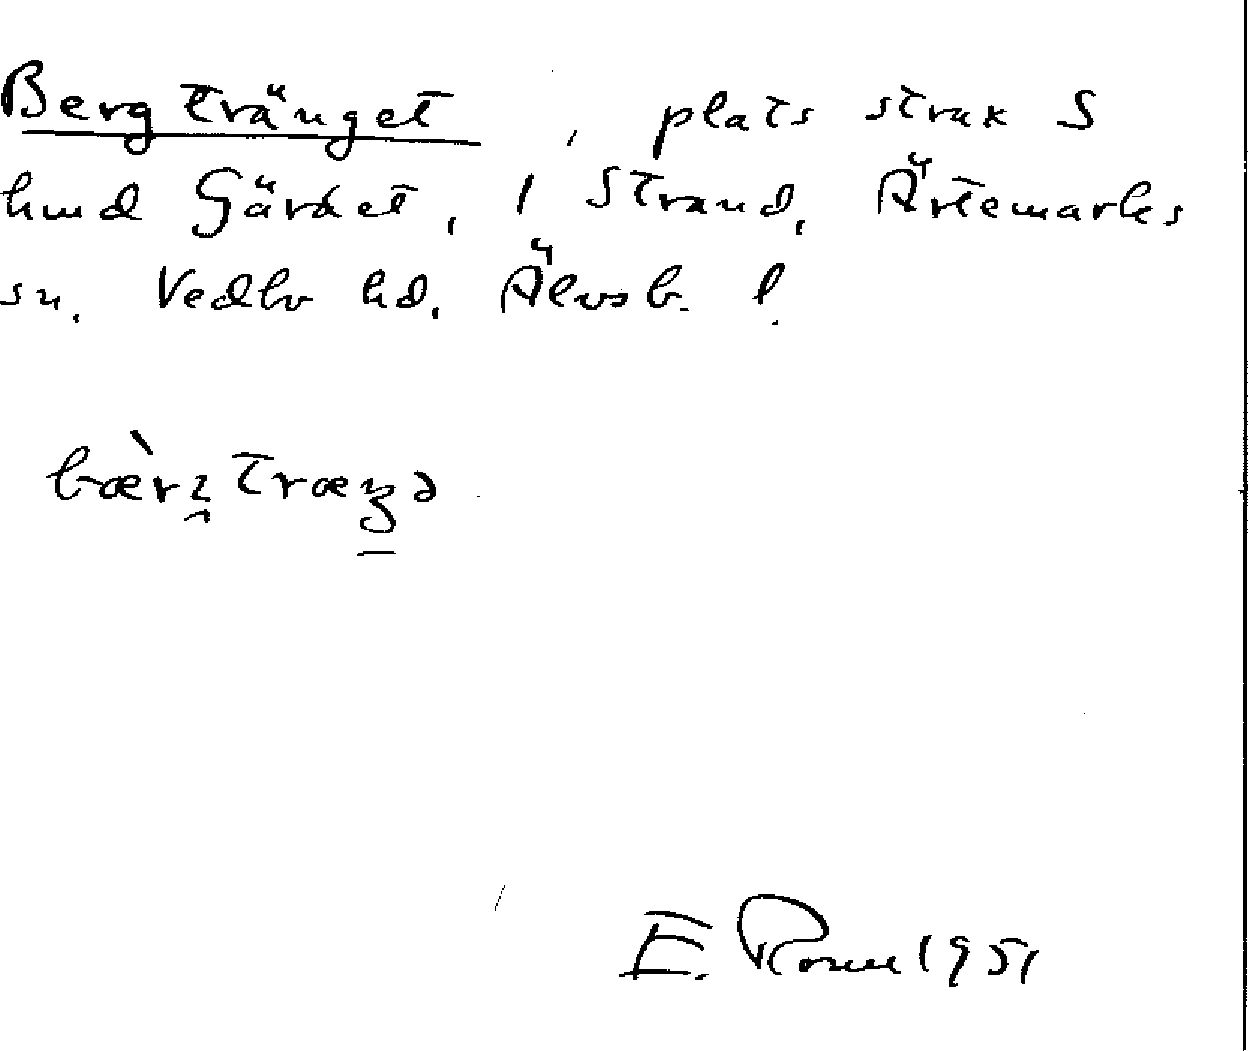 Bergtränget, plats strax S
hmd Gärdet, i Strand, Ärtemarks
sn. Vedbo hd. Älvsb. l.
E. Rosell 1951